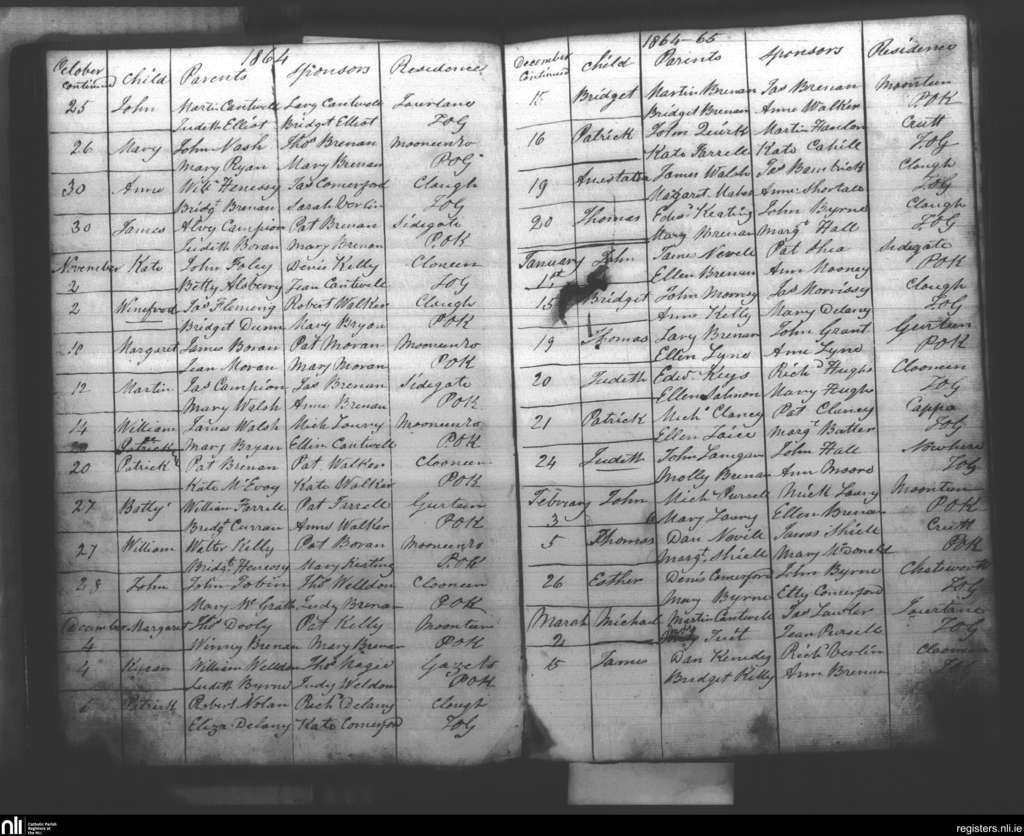 1864
October continued Child Parents Sponsors Residence
25 John Martin Cantwell Lary Cantwell Tourlane
Judith Elliot Bridget Elliot JOG
26 Mary John Nash Thos Brenan Mooneenro
Mary Ryan Mary Brenan POG
30 Anne Willm Henessy Jas Comerford Clough
Bridgt Brenan Sarah Verlin JOG
30 James Alvy Campion Pat Brenan Sidegate
Judith Boran Mary Brenan POK
November Kate John Foley Denis Kelly Cloneen
2 Betty Jean Cantwell JOG
2 Winefred Jas Fleming Robert Walker Clough
Bridget Dunn Mary Bryan POK
10 Margaret James Boran Pat Moran Mooneenro
Jean Moran Mary POK
12 Martin Jas Campion Jas Brenan Sidegate
Mary Walsh Anne Brenan POK
14 William James Walsh Mich Lowry Mooneenro
Patrick Mary Bryan Ellin Cantwell POK
20 Patrick Pat Brenan Pat Walker Clooneen
Kate McEvoy Kate Walker POK
27 Betty William Farrell Pat Farrell Gurteen
Bridgt Curran Anne Walker POK
27 William Walter Kelly Pat Boran Mooneenro
Bridgt Henessy Mary Keating POK
28 John John Tobin Thos Welldon Clooneen
Mary McGrath Judy Brenan POK
December Margaret Thos Dooly Pat Kelly Moonteen
4 Winny Brenan Mary Brenan POK
4 Kieran William Welldon Thos Magee Gazebo
Judith Byrne Judy Weldon POK
5 Patrick Robert Nolan Richd Delany Clough
Eliza Delany Kate Comerford JOG
1864-65
December Continued Child Parents Sponsors Residence
15 Bridget Martin Brenan Jas Brenan Moonteen
Bridget Brenan Anne Walker POK
16 Patrick John Quirk Martin Hanlon Crutt
Kate Farrell Kate Cahill JOG
19 Anestatia James Walsh Jas Bambrick Clough
Margaret Maher Anne Shortale JOG
20 Thomas Edwd Keating John Byrne Clough
Mary Brenan Margt Hall JOG
January John James Nevell Pat Shea Sidegate
1st Ellen Brenan Ann Mooney POK
15 Bridget John Morrisy Jas Morrissy Clough
Anne Kelly Mary Delany JOG
19 Thomas Lary Brenan John Grant Gurteen
Ellen Lyne Anne Lyne POK
20 Judith Edwd Keys Richd Hughs Clooneen
Ellen Salmon Mary Hughs JOG
21 Patrick Michl Clancy Pat Clancy Cappa
Ellen Joice Margt Batter JOG
24 Judith John Lanigan John Hall Newhire
Molly Brenan Ann Moore JOG
February John Michl Pursell Mick Lowry Moonteen
3 Mary Lowry Ellen Brenan POK
5 Thomas Dan Novill James Shiell Crutt
Margt Shiell Mary McDonald POK
26 Esther Denis Comerford John Byrne Chatsworth
Mary Byrne Elly Comerford JOG
March Michael Martin Cantwell Jas Lawlor Tourlane
2 Tuit Jean Pursell JOG
15 James Dan Kenedy Richd Verlin Clooneen
Bridget Kelly Ann Brenan
nli Catholic Parish Registers at the NLI
registers.nli.ie